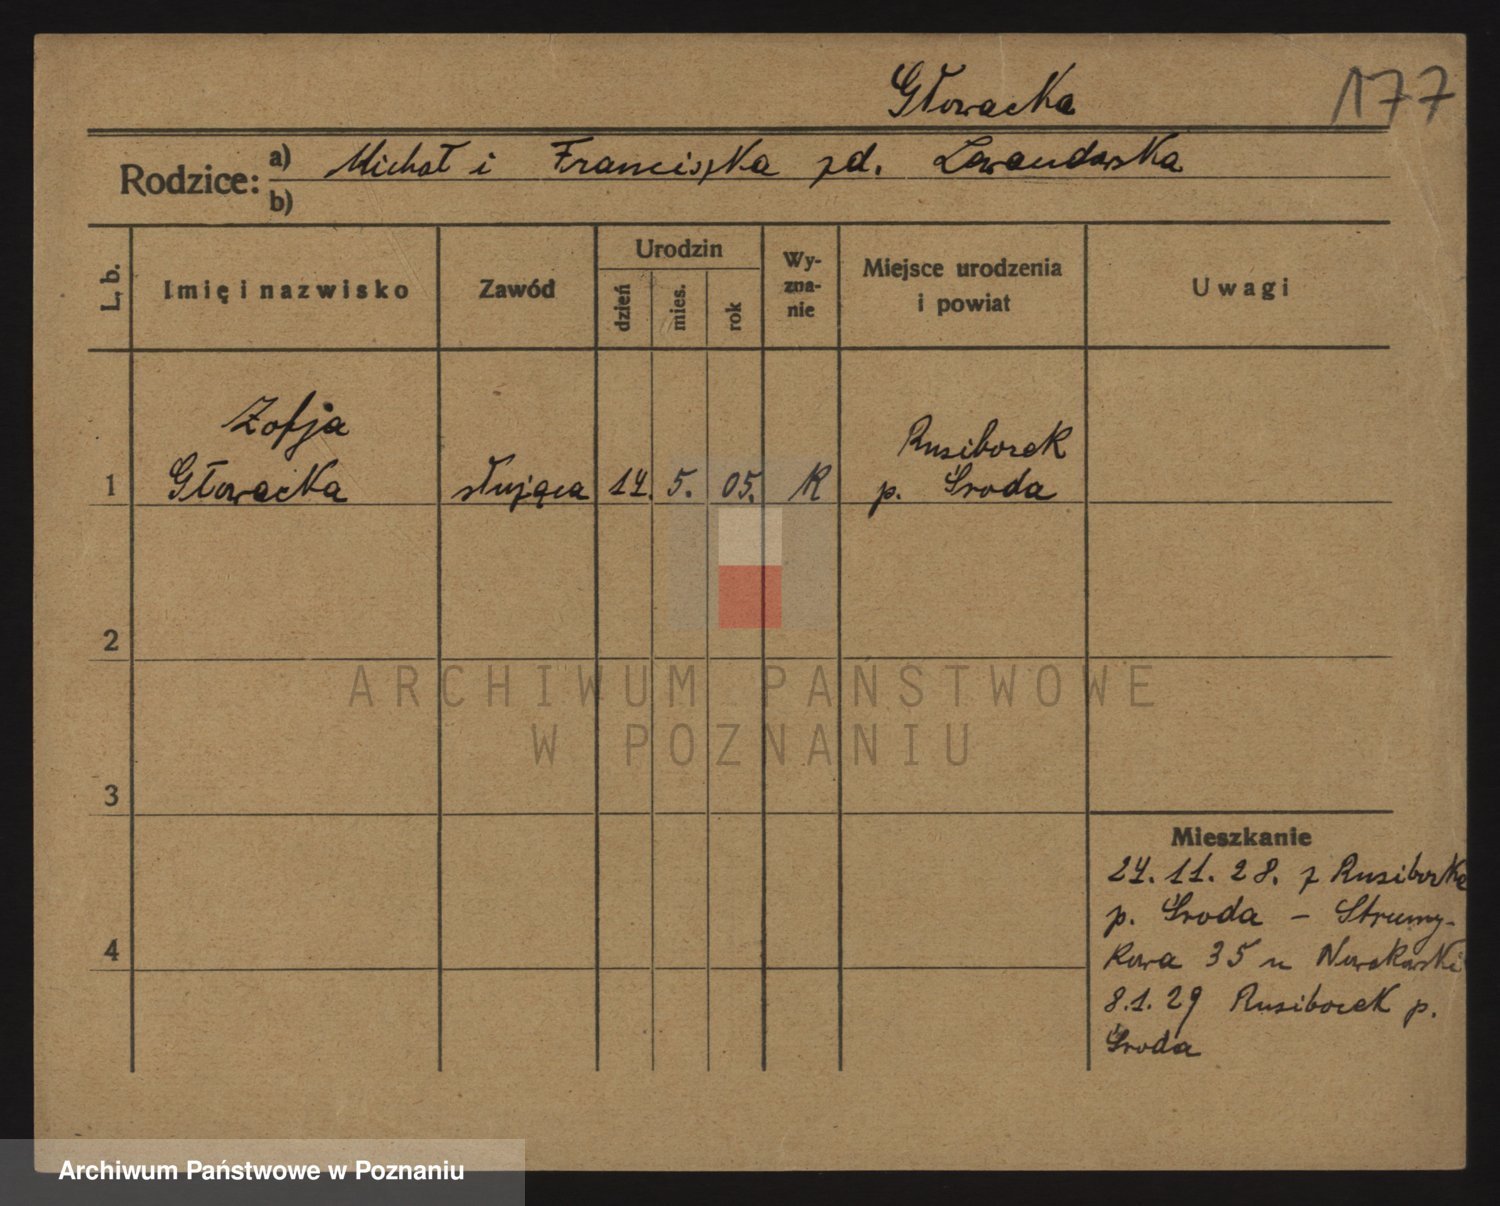 Głowacka
177
Rodzice: a) Michał i Franciszka zd. Lewandowska
b)
L. b.
Imię i nazwisko
Zawód
Urodzin
dzień
mies.
rok
Wy-
zna-
nie
Miejsce urodzenia
i powiat
Uwagi
Zofja
Głowacka
1
służąca
14. 5. 05.
R
Rusiborek
p. Środa
2
3
4
Mieszkanie
24. 11. 28. z Rusiborka
p. Środa – Strumy-
kowa 35 u Nowakowski
8.1.29 Rusiborek p.
Środa
ARCHIWUM PAŃSTWOWE
W POZNANIU
Archiwum Państwowe w Poznaniu